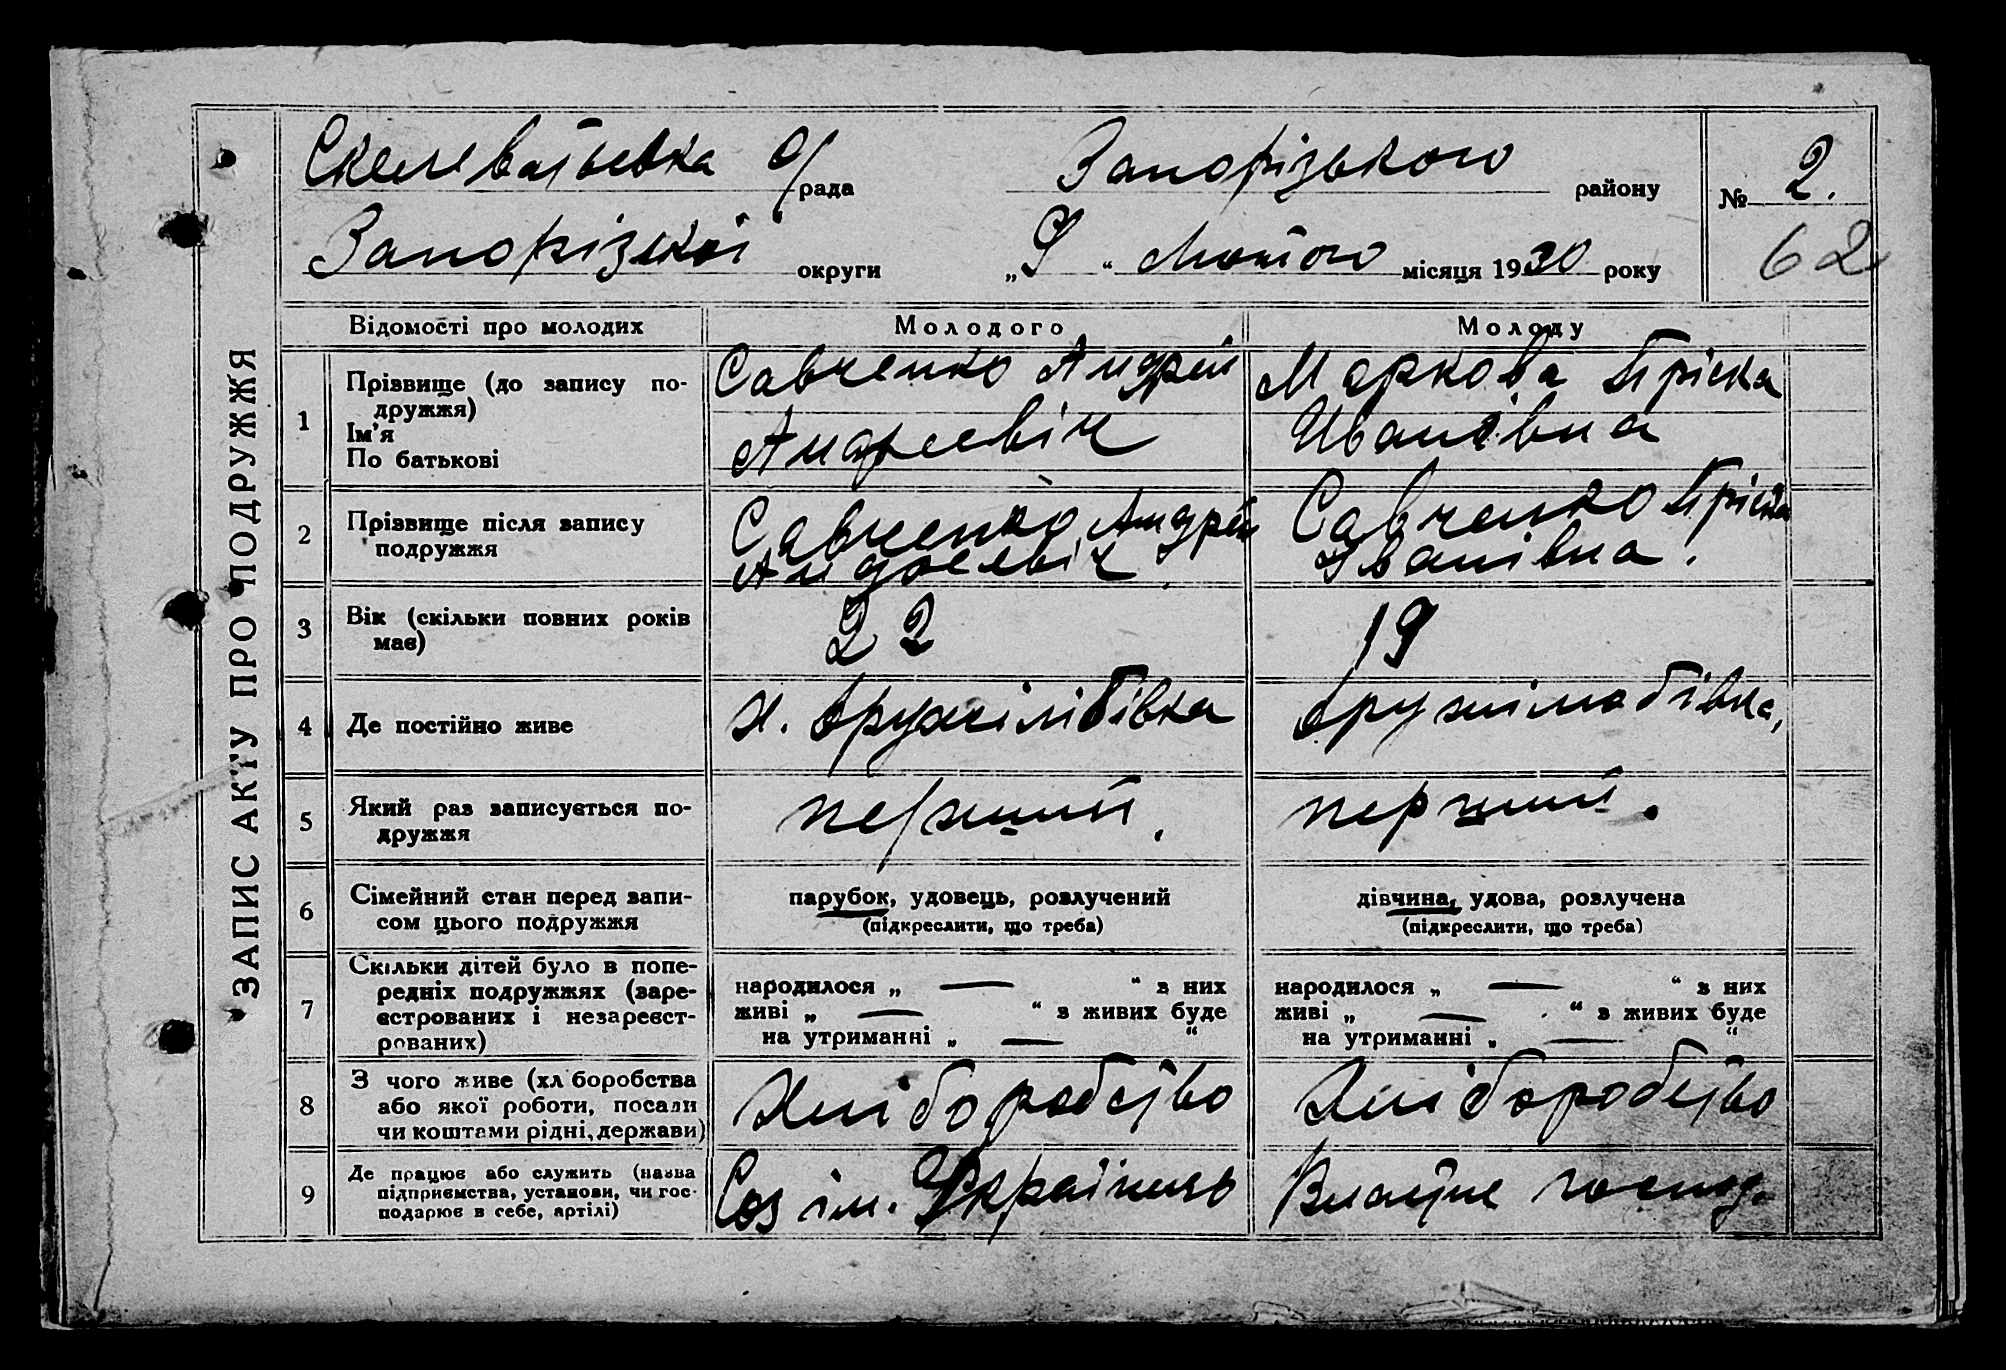 ЗАПИС АКТУ ПРО ПОДРУЖЖЯ
Скелеватьевка с/рада Запорізького району № 2.
Запорізької округи „9“ Лютого місяця 1930 року 62
Відомості про молодих Молодого Молоду
1 Прізвище (до запису подружжя) Савченко Андрей Маркова Пріска
Ім'я
По батькові Андреевіч Ивановна
2 Прізвище після запису Савченко Андрей Савченко Пріска
подружжя Андреевіч Іванівна.
3 Вік (скільки повних років 22 19
має)
4 Де постійно живе х.
5 Який раз записується по- перший. перший.
дружжя
6 Сімейний стан перед запи- парубок, удовець, розлучений дівчина, удова, розлучена
сом цього подружжя (підкреслити, що треба) (підкреслити, що треба)
7 Скільки дітей було в попе- народилося „ — “ з них народилося „ — “ з них
редніх подружжях (заре- живі „ — “ з живих буде живі „ — “ з живих буде
єстрованих і незареєст- на утриманні „ — “ на утриманні „ — “
рованих)
8 З чого живе (хліборобства Хліборобство Хліборобство
або якої роботи, посади
чи коштами рідні, держави)
9 Де працює або служить (назва Соз ім. Українець Власне господ.
підприємства, установи, чи гос-
подарює в себе, артілі)